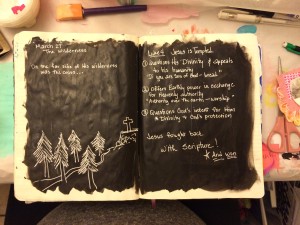 March 27
The Wilderness
On the far side of the wilderness
with the cross...
Luke 4 Jesus is Tempted
① Questions His Divinity & appeals
to his humanity
"If you are Son of God - bread"
② Offers Earthly power in exchange
for Heavenly authority
"Authority over the earth - worship"
③ Questions God's intent for Him
& Divinity & God's protection
Jesus fought back
with Scripture!
* And won